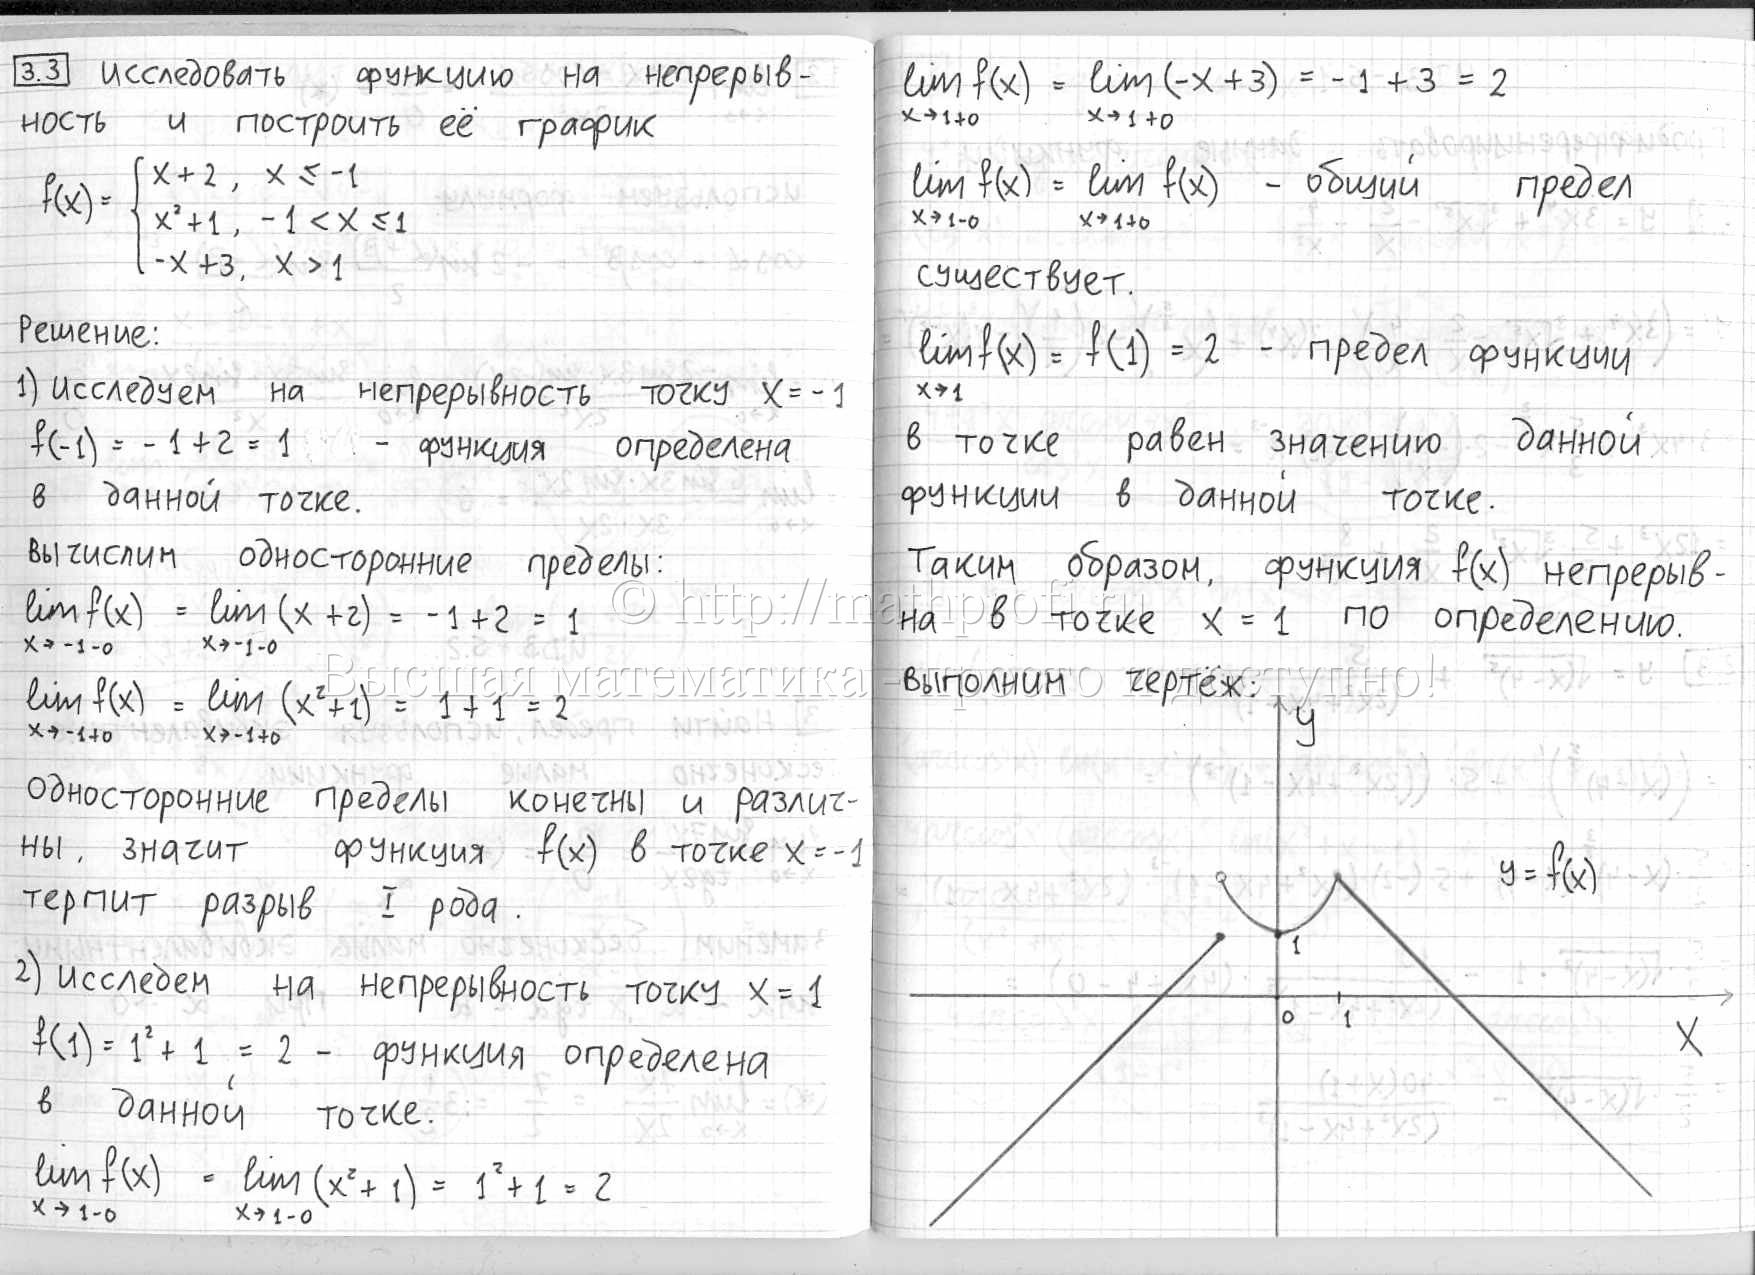 3.3 Исследовать функцию на непрерыв-
ность и построить её график
f(x) = { x + 2, x ≤ -1
x² + 1, -1 < x ≤ 1
-x + 3, x > 1
Решение:
1) Исследуем на непрерывность точку x = -1
f(-1) = -1 + 2 = 1 - функция определена
в данной точке.
Вычислим односторонние пределы:
lim f(x) = lim (x + 2) = -1 + 2 = 1
x→-1-0 x→-1-0
lim f(x) = lim (x² + 1) = 1 + 1 = 2
x→-1+0 x→-1+0
Односторонние пределы конечны и различ-
ны, значит функция f(x) в точке x = -1
терпит разрыв I рода.
2) Исследем на непрерывность точку x = 1
f(1) = 1² + 1 = 2 - функция определена
в данной точке.
lim f(x) = lim (x² + 1) = 1² + 1 = 2
x→1-0 x→1-0
lim f(x) = lim (-x + 3) = -1 + 3 = 2
x→1+0 x→1+0
lim f(x) = lim f(x) - общий предел
x→1-0 x→1+0
существует.
lim f(x) = f(1) = 2 - предел функции
x→1
в точке равен значению данной
функции в данной точке.
Таким образом, функция f(x) непрерыв-
на в точке x = 1 по определению.
Выполним чертёж:
y
y = f(x)
1
0 1
X
© http://mathprofi.ru
Высшая математика – просто и доступно!